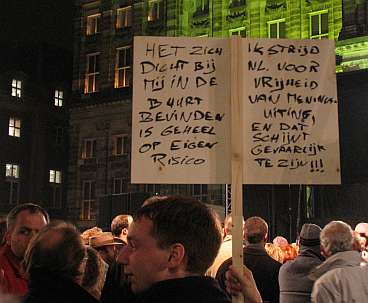 HET ZICH
DICHT BIJ
MIJ IN DE
BUURT
BEVINDEN
IS GEHEEL
OP EIGEN
RISICO
IK STRIJD
NL. VOOR
VRIJHEID
VAN MENINGS-
UITING,
EN DAT
SCHIJNT
GEVAARLIJK
TE ZIJN!!!